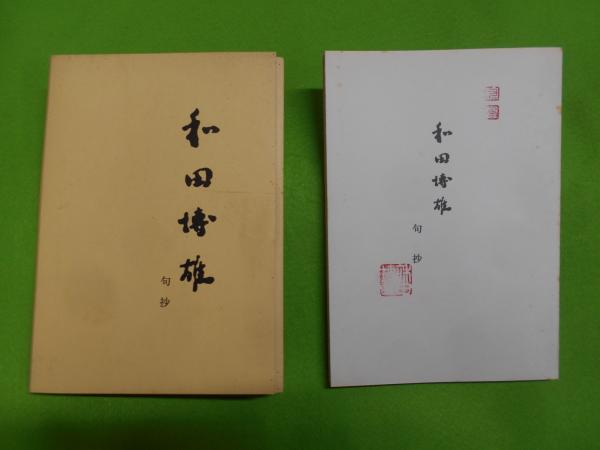 和田博雄
句抄
和田博雄
句抄